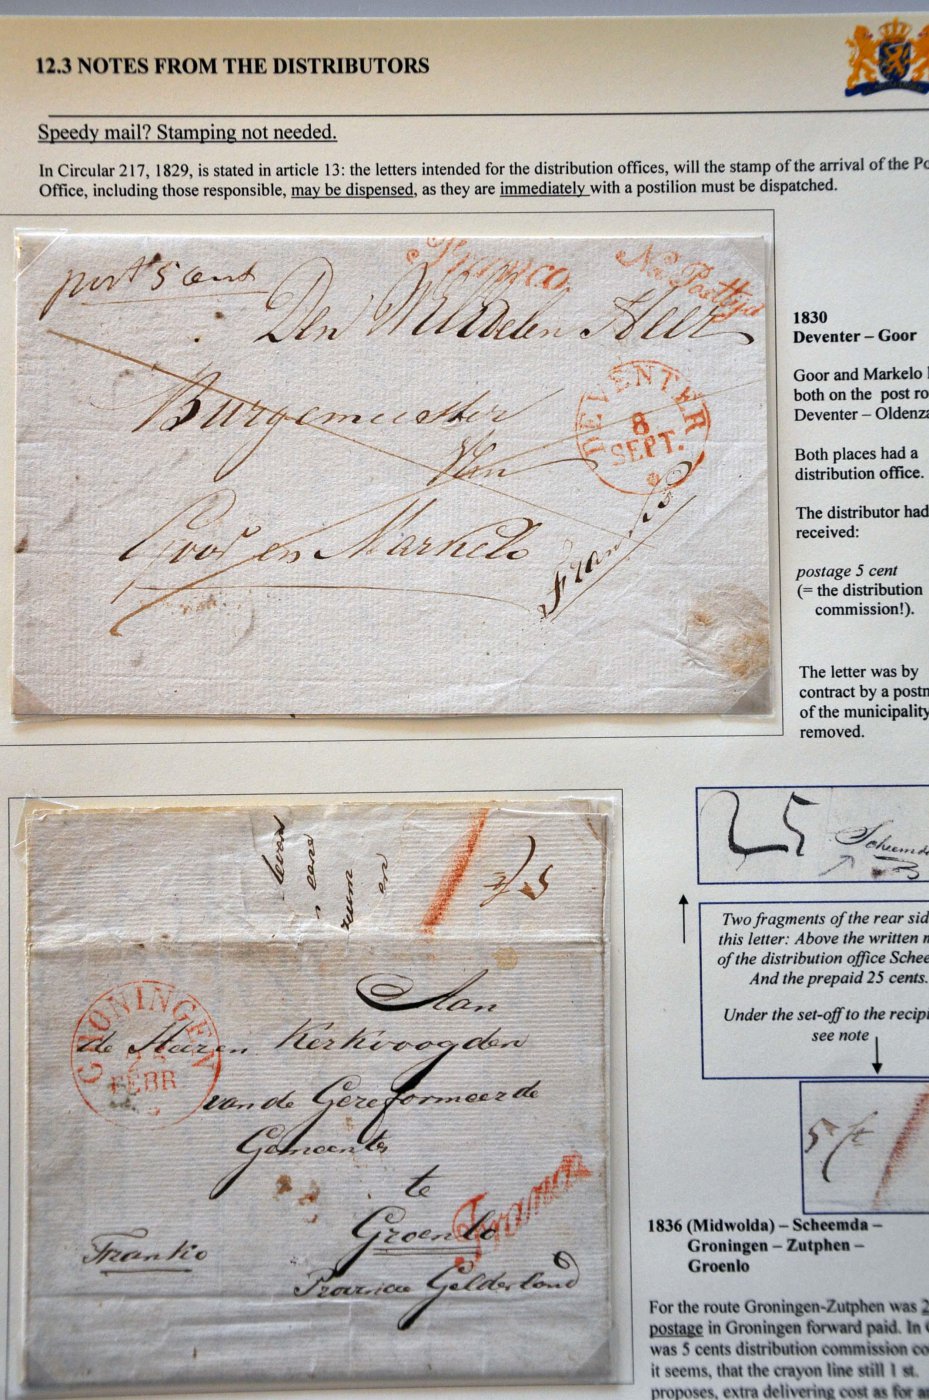 12.3 NOTES FROM THE DISTRIBUTORS
Speedy mail? Stamping not needed.
In Circular 217, 1829, is stated in article 13: the letters intended for the distribution offices, will the stamp of the arrival of the Po
Office, including those responsible, may be dispensed, as they are immediately with a postilion must be dispatched.
port 5 cent
Franco
Na Posttijd
Den WelEdelen Heer
Burgemeester
Van
Goor en Markelo
DEVENTER
8
SEPT.
Franko
1830
Deventer – Goor
Goor and Markelo
both on the post ro
Deventer – Oldenza
Both places had a
distribution office.
The distributor had
received:
postage 5 cent
(= the distribution
commission!).
The letter was by
contract by a postm
of the municipality
removed.
25
Scheemda
Two fragments of the rear sid
this letter: Above the written n
of the distribution office Schee
And the prepaid 25 cents.
Under the set-off to the recipi
see note
GRONINGEN
FEBR.
Aan
de Heeren Kerkvoogden
van de Gereformeerde
Gemeente
te
Groenlo
Provincie Gelderland
Franko
Franco
1836 (Midwolda) – Scheemda –
Groningen – Zutphen –
Groenlo
For the route Groningen-Zutphen was 2
postage in Groningen forward paid. In
was 5 cents distribution commission co
it seems, that the crayon line still 1 st.
proposes, extra delivering cost as for an